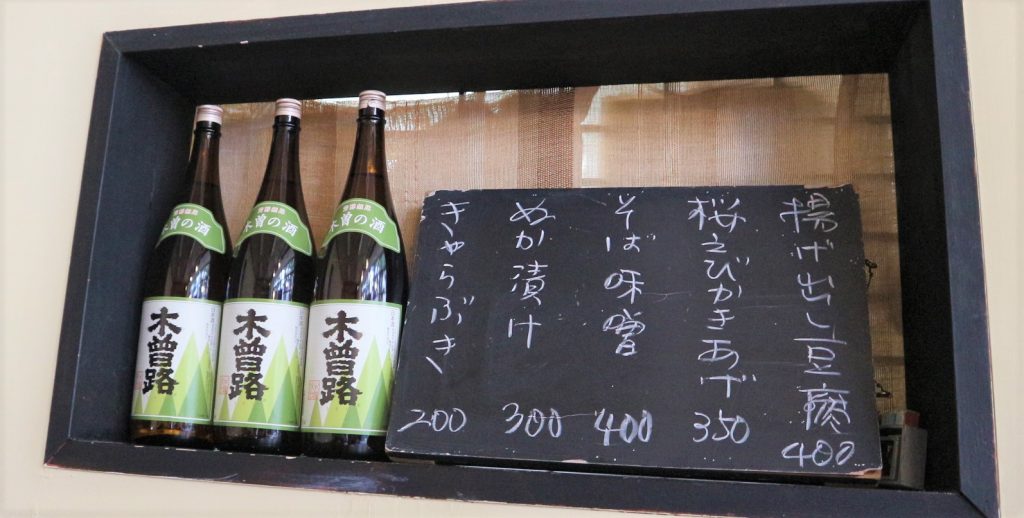 揚げ出し豆腐
400
桜えびかきあげ
350
そば味噌
400
ぬか漬け
300
きゃらぶき
200
木曽の酒
木曽路
木曽の酒
木曽路
木曽の酒
木曽路